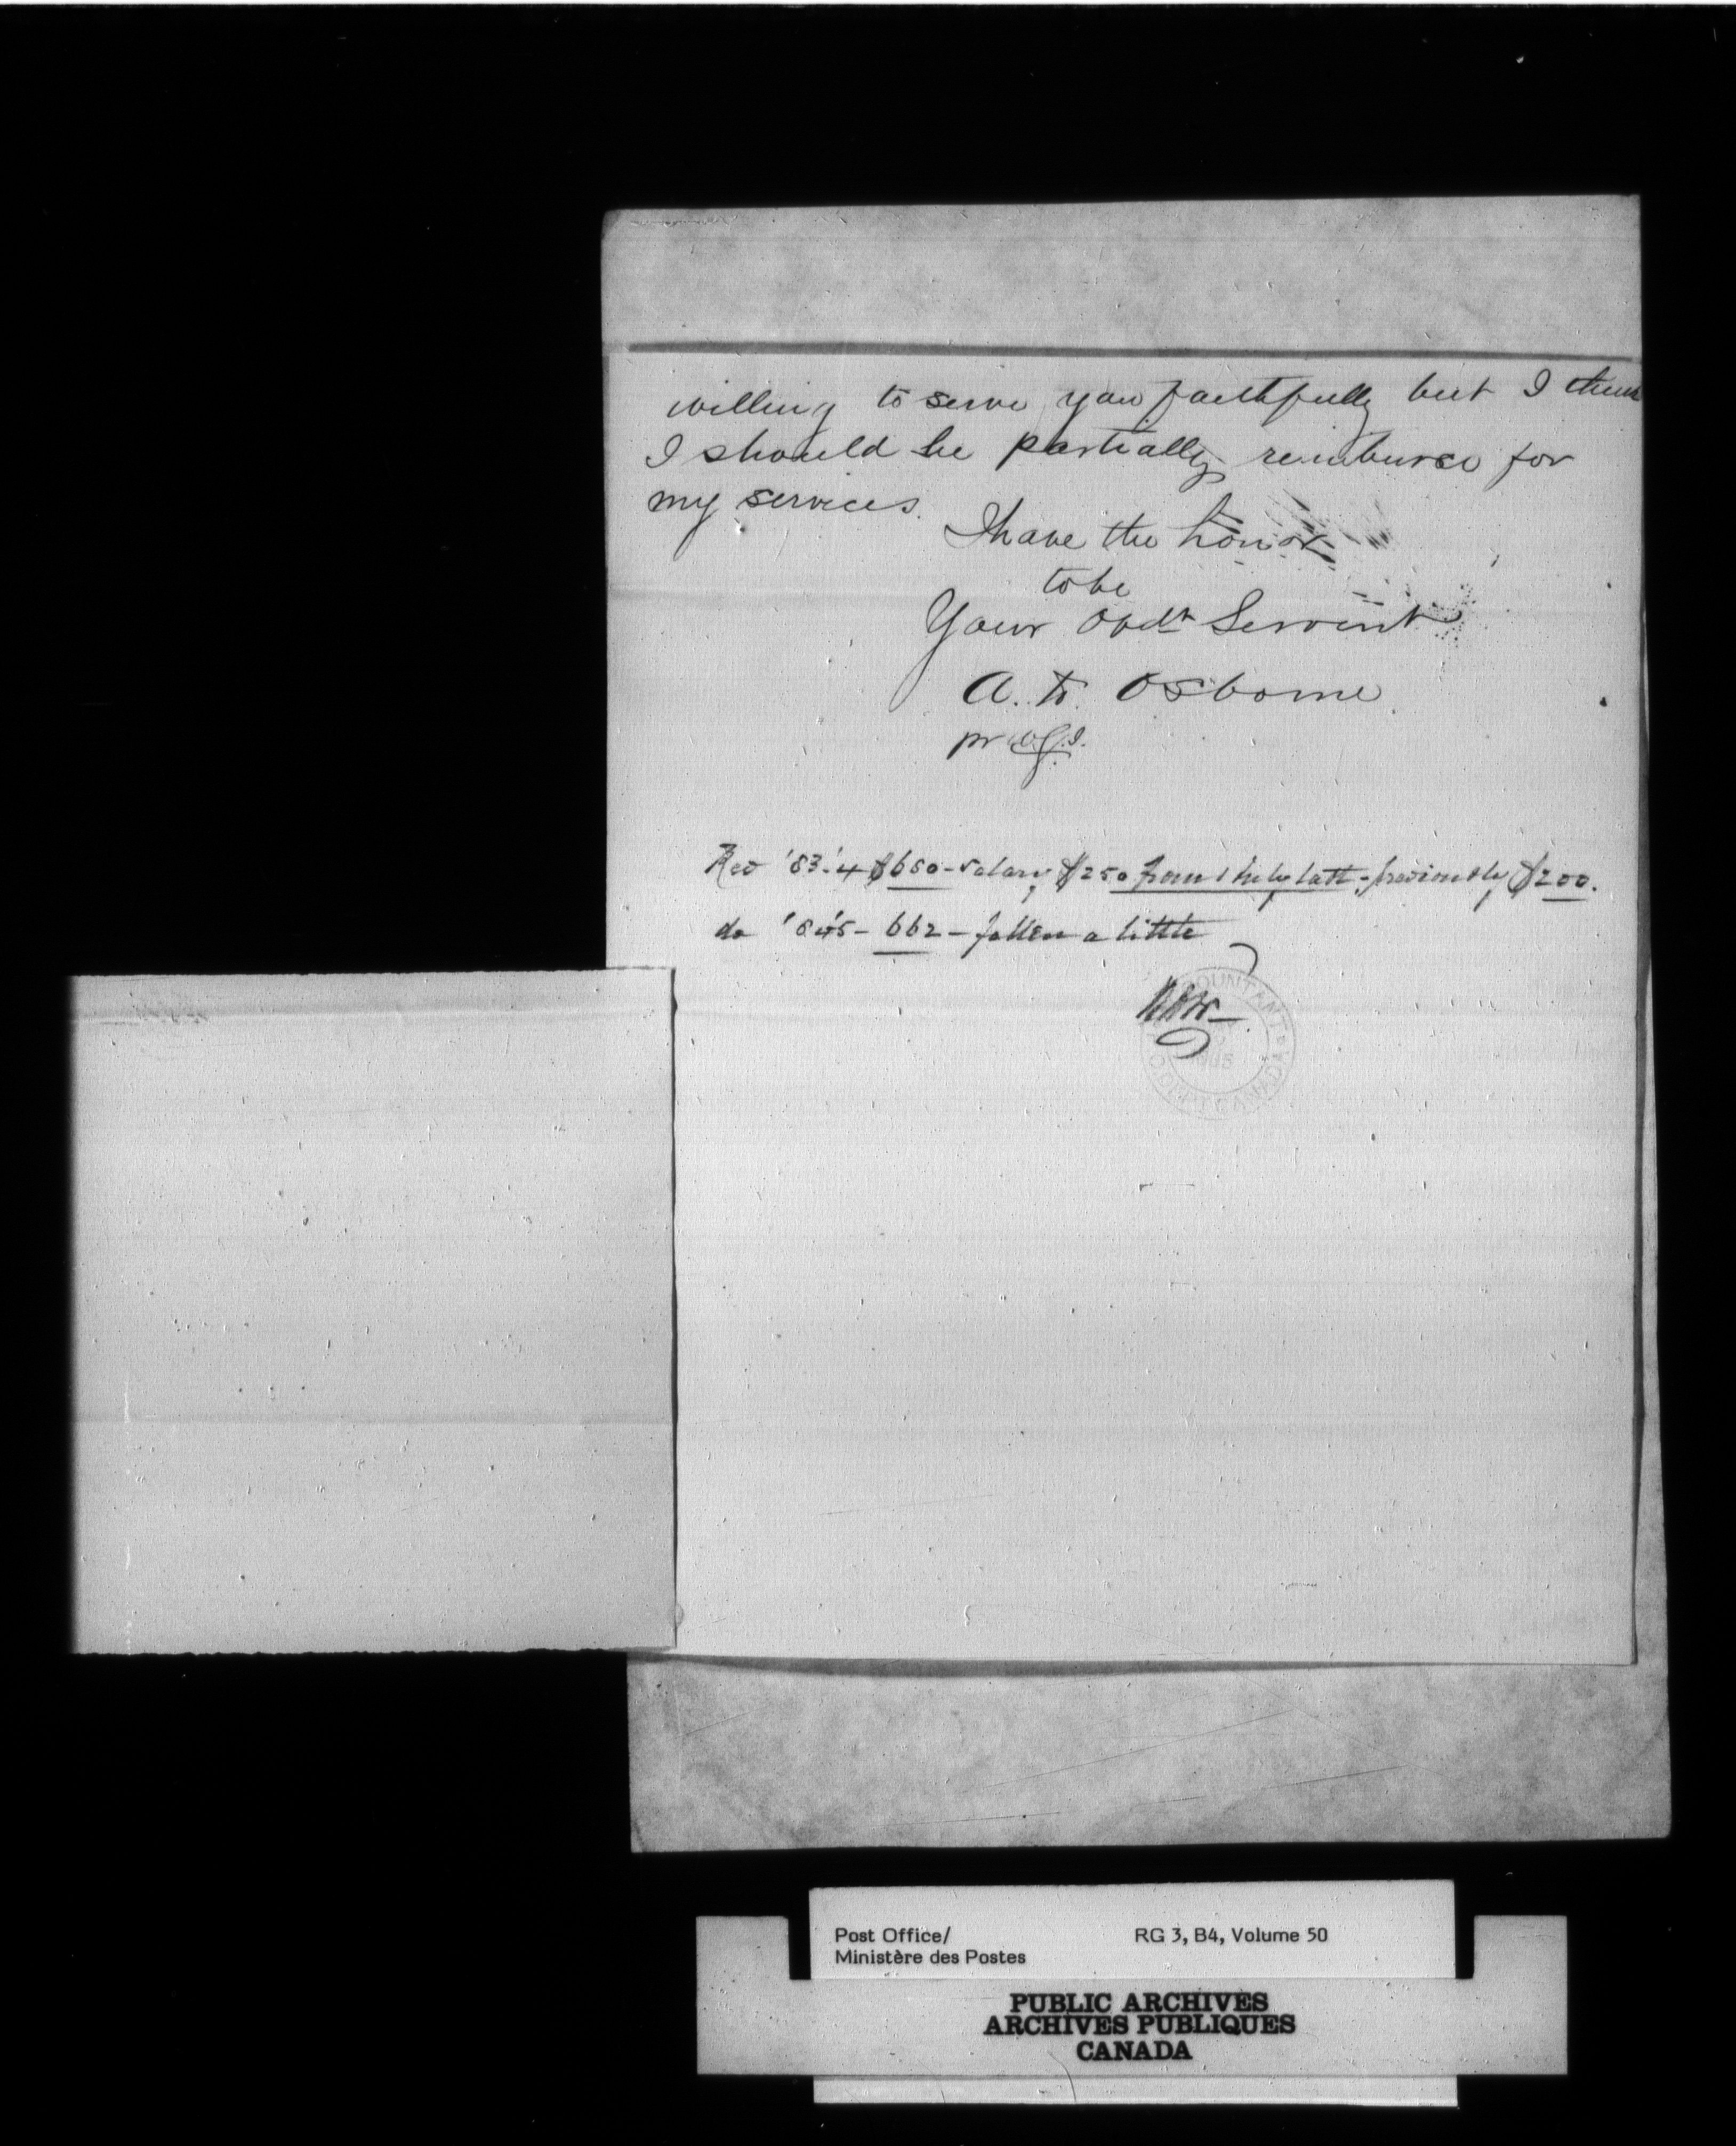 willing to serve you faithfully but I think
I should be partially reimburse for
my services.
I have the honor
to be
Your Obdt Servent
A. Osborne.
pr
Rev '83.'4 $680 - salary, $250 from 1 July last - previously, $200.
do '84'5 - 662 - fallen a little
ACCOUNTANT
CANADA
Post Office/
Ministère des Postes
RG 3, B4, Volume 50
PUBLIC ARCHIVES
ARCHIVES PUBLIQUES
CANADA